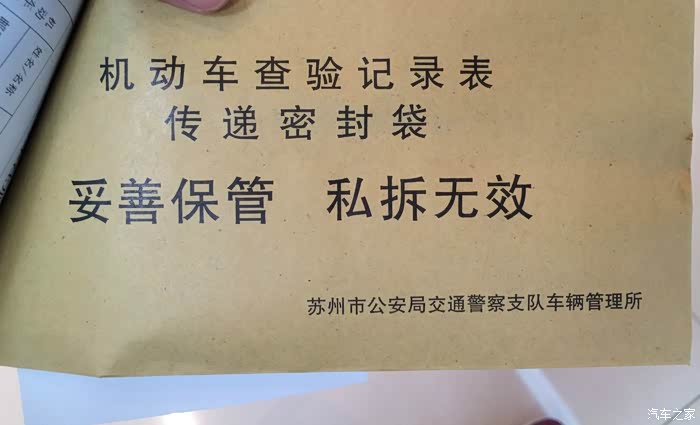 机动车查验记录表
传递密封袋
妥善保管 私拆无效
苏州市公安局交通警察支队车辆管理所
姓名/名称
汽车之家